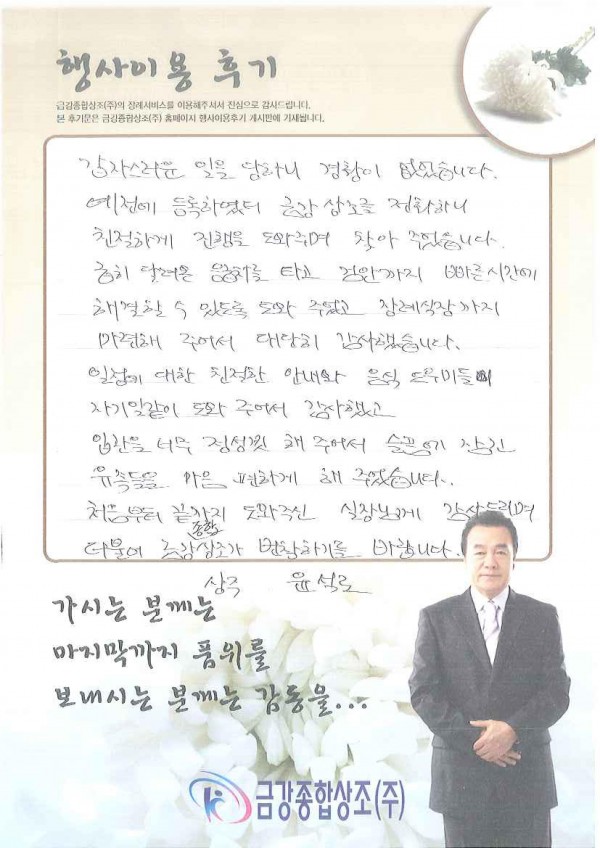 행사이용 후기
금강종합상조(주)의 장례서비스를 이용해주셔서 진심으로 감사드립니다.
본 후기문은 금강종합상조(주) 홈페이지 행사이용후기 게시판에 기재됩니다.
갑자스러운 일을 당하니 경황이 없었습니다.
예전에 등록하였더 금강 상조로 전화하니
친절하게 진행을 도와주며 찾아 주었습니다.
급히 달려온 응급차를 타고 검안까지 빠른시간에
해결할 수 있도록 도와 주었고 장례식장까지
마련해 주어서 대단히 감사했습니다.
일정에 대한 친절한 안내와 음식 도우미들의
자기일같이 도와 주어서 감사했고
입관을 너무 정성껏 해 주어서 슬픔에 잠긴
유족들을 마음 편하게 해 주었습니다.
처음부터 끝까지 도와주신 실장님께 감사드리며
더불어 금강종합상조가 번창하기를 바랍니다.
상주 윤석로
가시는 분께는
마지막까지 품위를
보내시는 분께는 감동을...
금강종합상조(주)